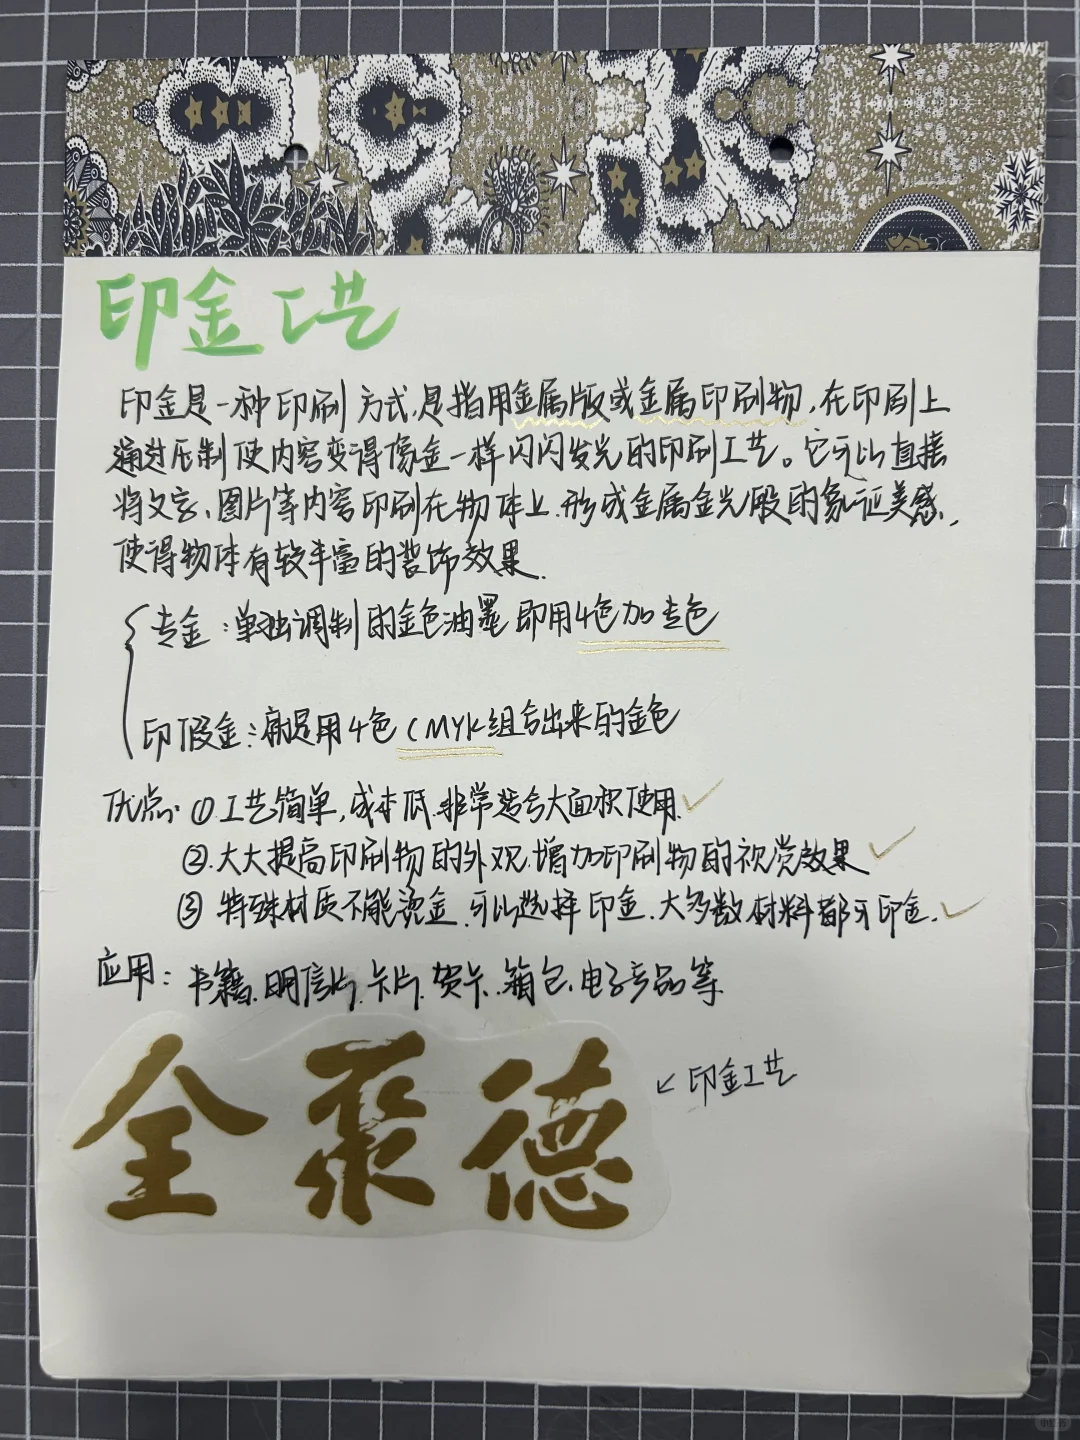 印金工艺
印金是一种印刷方式,是指用金属版或金属印刷物,在印刷上
通过压制使内容变得像金一样闪闪发光的印刷工艺。它可以直接
将文字、图片等内容印刷在物体上.形成金属金光般的象征美感,
使得物体有较丰富的装饰效果.
专金:单独调制的金色油墨 即用4色加专色
印假金:就是用4色CMYK组合出来的金色
优点:①.工艺简单,成本低.非常适合大面积使用.
②.大大提高印刷物的外观.增加印刷物的视觉效果
③ 特殊材质不能烫金.可以选择印金.大多数材料都可印金.
应用:书籍.明信片.卡片.贺卡.箱包.电子产品等
全聚德
↙印金工艺